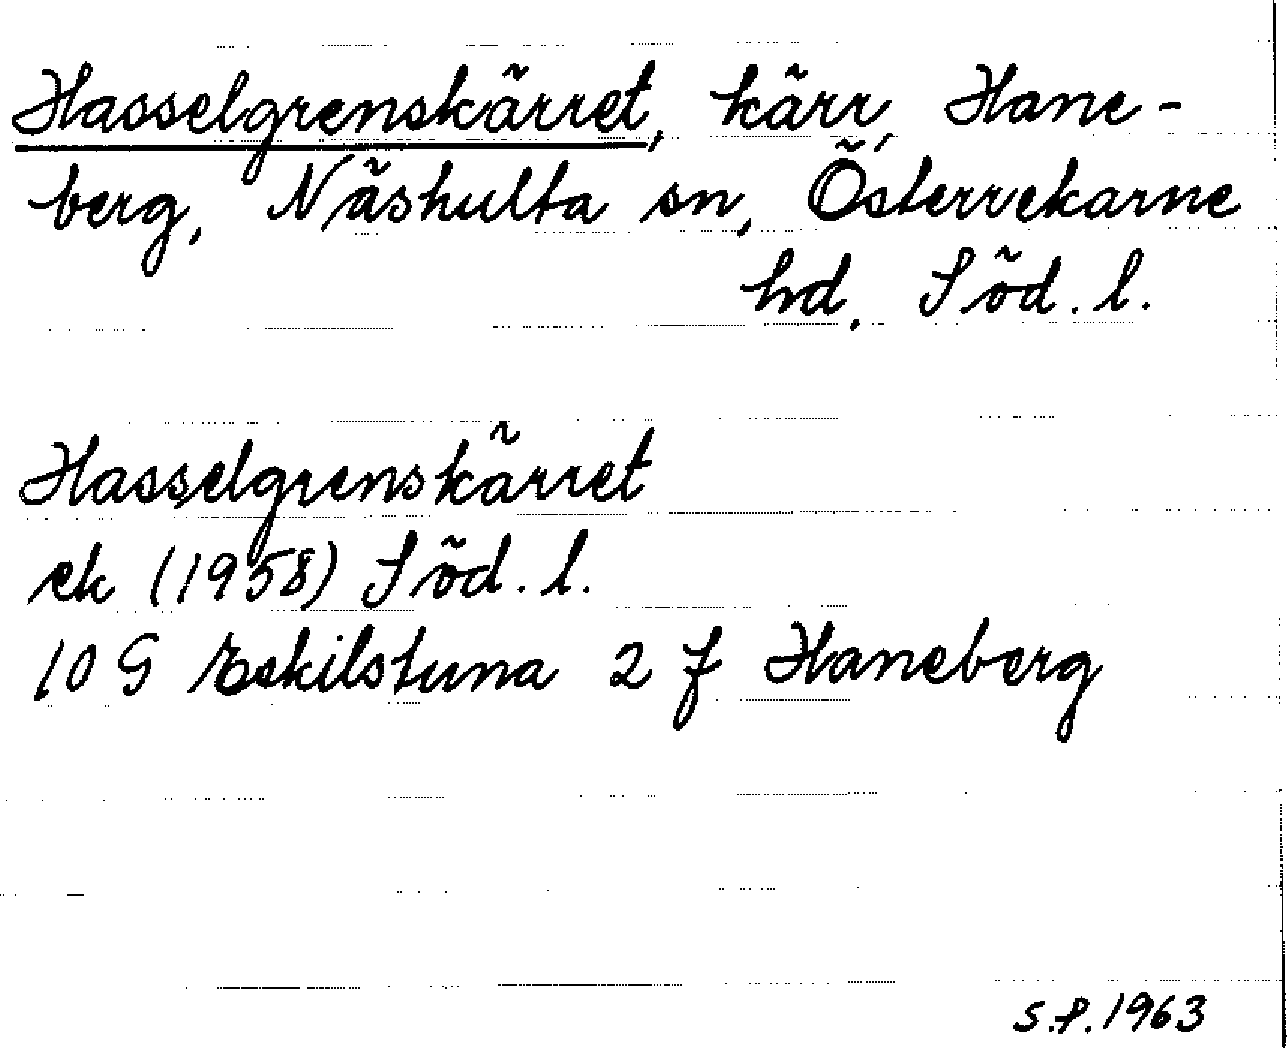 Hasselgrenskärret, kärr, Hane-
berg, Näshulta sn, Österrekarne
hd, Söd. l.
Hasselgrenskärret
ek (1958) Söd. l.
10 G Eskilstuna 2 f Haneberg
S.P. 1963